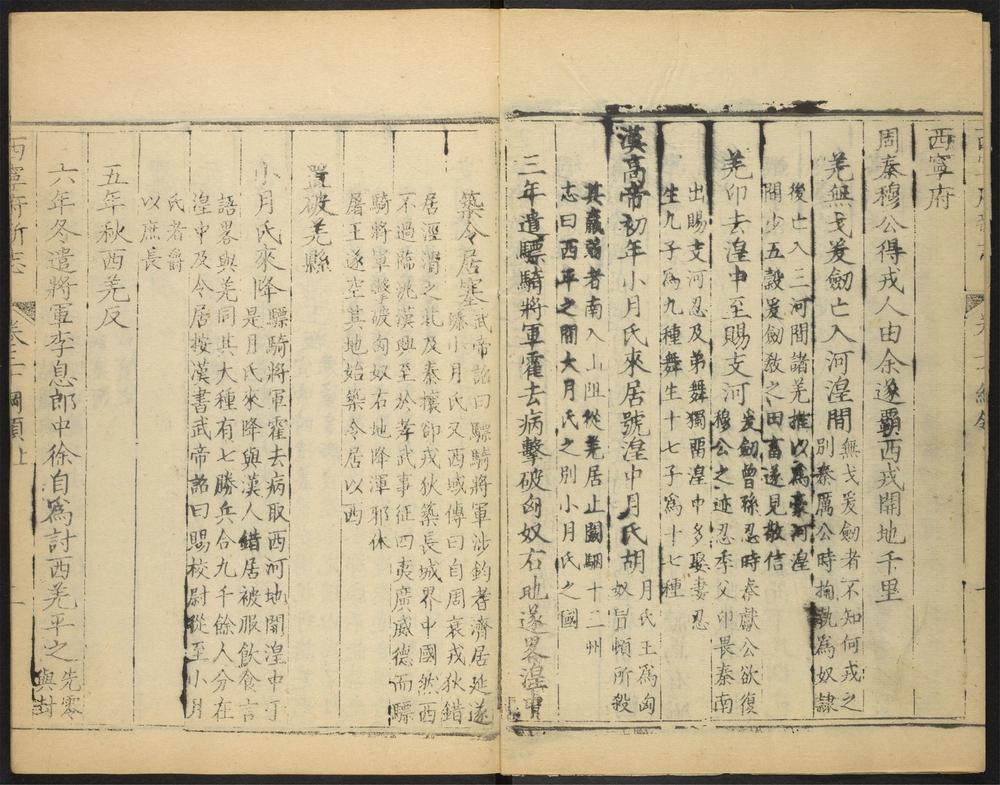 西寧府
周秦穆公得戎人由余遂霸西戎開地千里
羌無弋爰劒亡入河湟間
無弋爰劒者不知何戎之
別秦厲公時拘執為奴隸
後亡入三河間諸羌推以為豪河湟
間少五穀爰劒教之田畜遂見敬信
羌卬去湟中至賜支河
爰劒曾孫忍時秦獻公欲復
穆公之迹忍季父卬畏秦南
出賜支河忍及弟舞獨畱湟中多娶妻忍
生九子為九種舞生十七子為十七種
漢高帝初年小月氏來居號湟中月氏胡
月氏王為匈
奴冒頓所殺
其羸弱者南入山阻從羌居止闞駰十三州
志曰西平之間大月氏之別小月氏之國
三年遣驃騎將軍霍去病擊破匈奴右地遂畧湟中
築令居塞
武帝詔曰驃騎將軍涉鈞耆濟居延遂
溱小月氏又西域傳曰自周衰戎狄錯
居涇渭之北及秦攘卻戎狄築長城界中國然西
不過臨洮漢興至於孝武事征四夷廣威德而驃
騎將軍擊破匈奴右地降渾邪休
屠王遂空其地始築令居以西
置破羌縣
小月氏來降
驃騎將軍霍去病取西河地開湟中于
是月氏來降與漢人錯居被服飲食言
語畧與羌同其大種有七勝兵合九千餘人分在
湟中及令居按漢書武帝詔曰賜校尉從至小月
氏者爵
以庶長
五年秋西羌反
六年冬遣將軍李息郎中徐自為討西羌平之
先零
與封
西寧府新志
卷三十一
綱領上
一